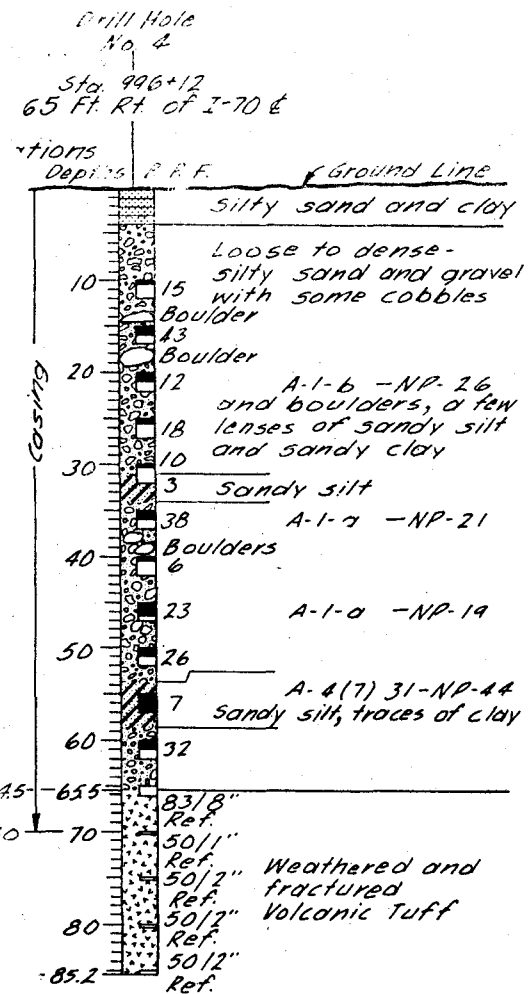 Drill Hole
No. 4
Sta. 996+12
65 Ft. Rt. of I-70 ℄
Depths P.R.F.
Ground Line
Silty sand and clay
Loose to dense-
silty sand and gravel
with some cobbles
10
15
Boulder
43
Boulder
20
12
A-1-b -NP-26
and boulders, a few
lenses of sandy silt
and sandy clay
18
Casing
30
10
3
Sandy silt
38
A-1-a -NP-21
Boulders
40
6
23
A-1-a -NP-19
50
26
A-4(7) 31-NP-44
7
Sandy silt, traces of clay
60
32
65.5
83/8"
Ref.
70
50/1"
Ref.
50/2"
Ref.
Weathered and
fractured
Volcanic Tuff
80
50/2"
Ref.
50/2"
Ref.
85.2